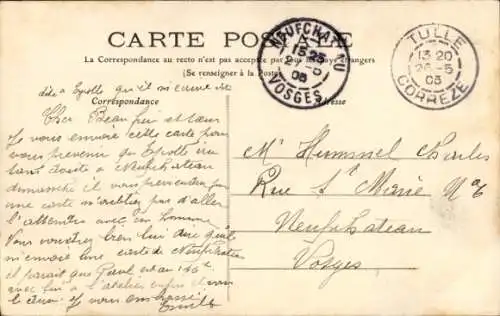 CARTE POSTALE
La Correspondance au recto n'est pas acceptée par tous les pays étrangers
(Se renseigner à la Poste)
NEUFCHATEAU
15 25
27-5
05
VOSGES
TULLE
13 20
26-5
05
CORRÈZE
Correspondance
Adresse
dis a Epolle qu'il m'
Cher Beau frère et Sœur
Je vous envoie cette carte pour
vous prévenir que Epolle ira
sans doute à Neufchateau
dimanche il vous préviendra par
une carte n'oubliez pas d'aller
l'attendre avec
Vous voudrez bien lui dire qu'il
m'envoie une carte de Neufchateau
il parait que Paul est au 146e
avec lui à l'atelier enfin
Je vous embrasse
Emile
Mr Hummel Charles
Rue Ste Marie No 6
Neufchateau
Vosges